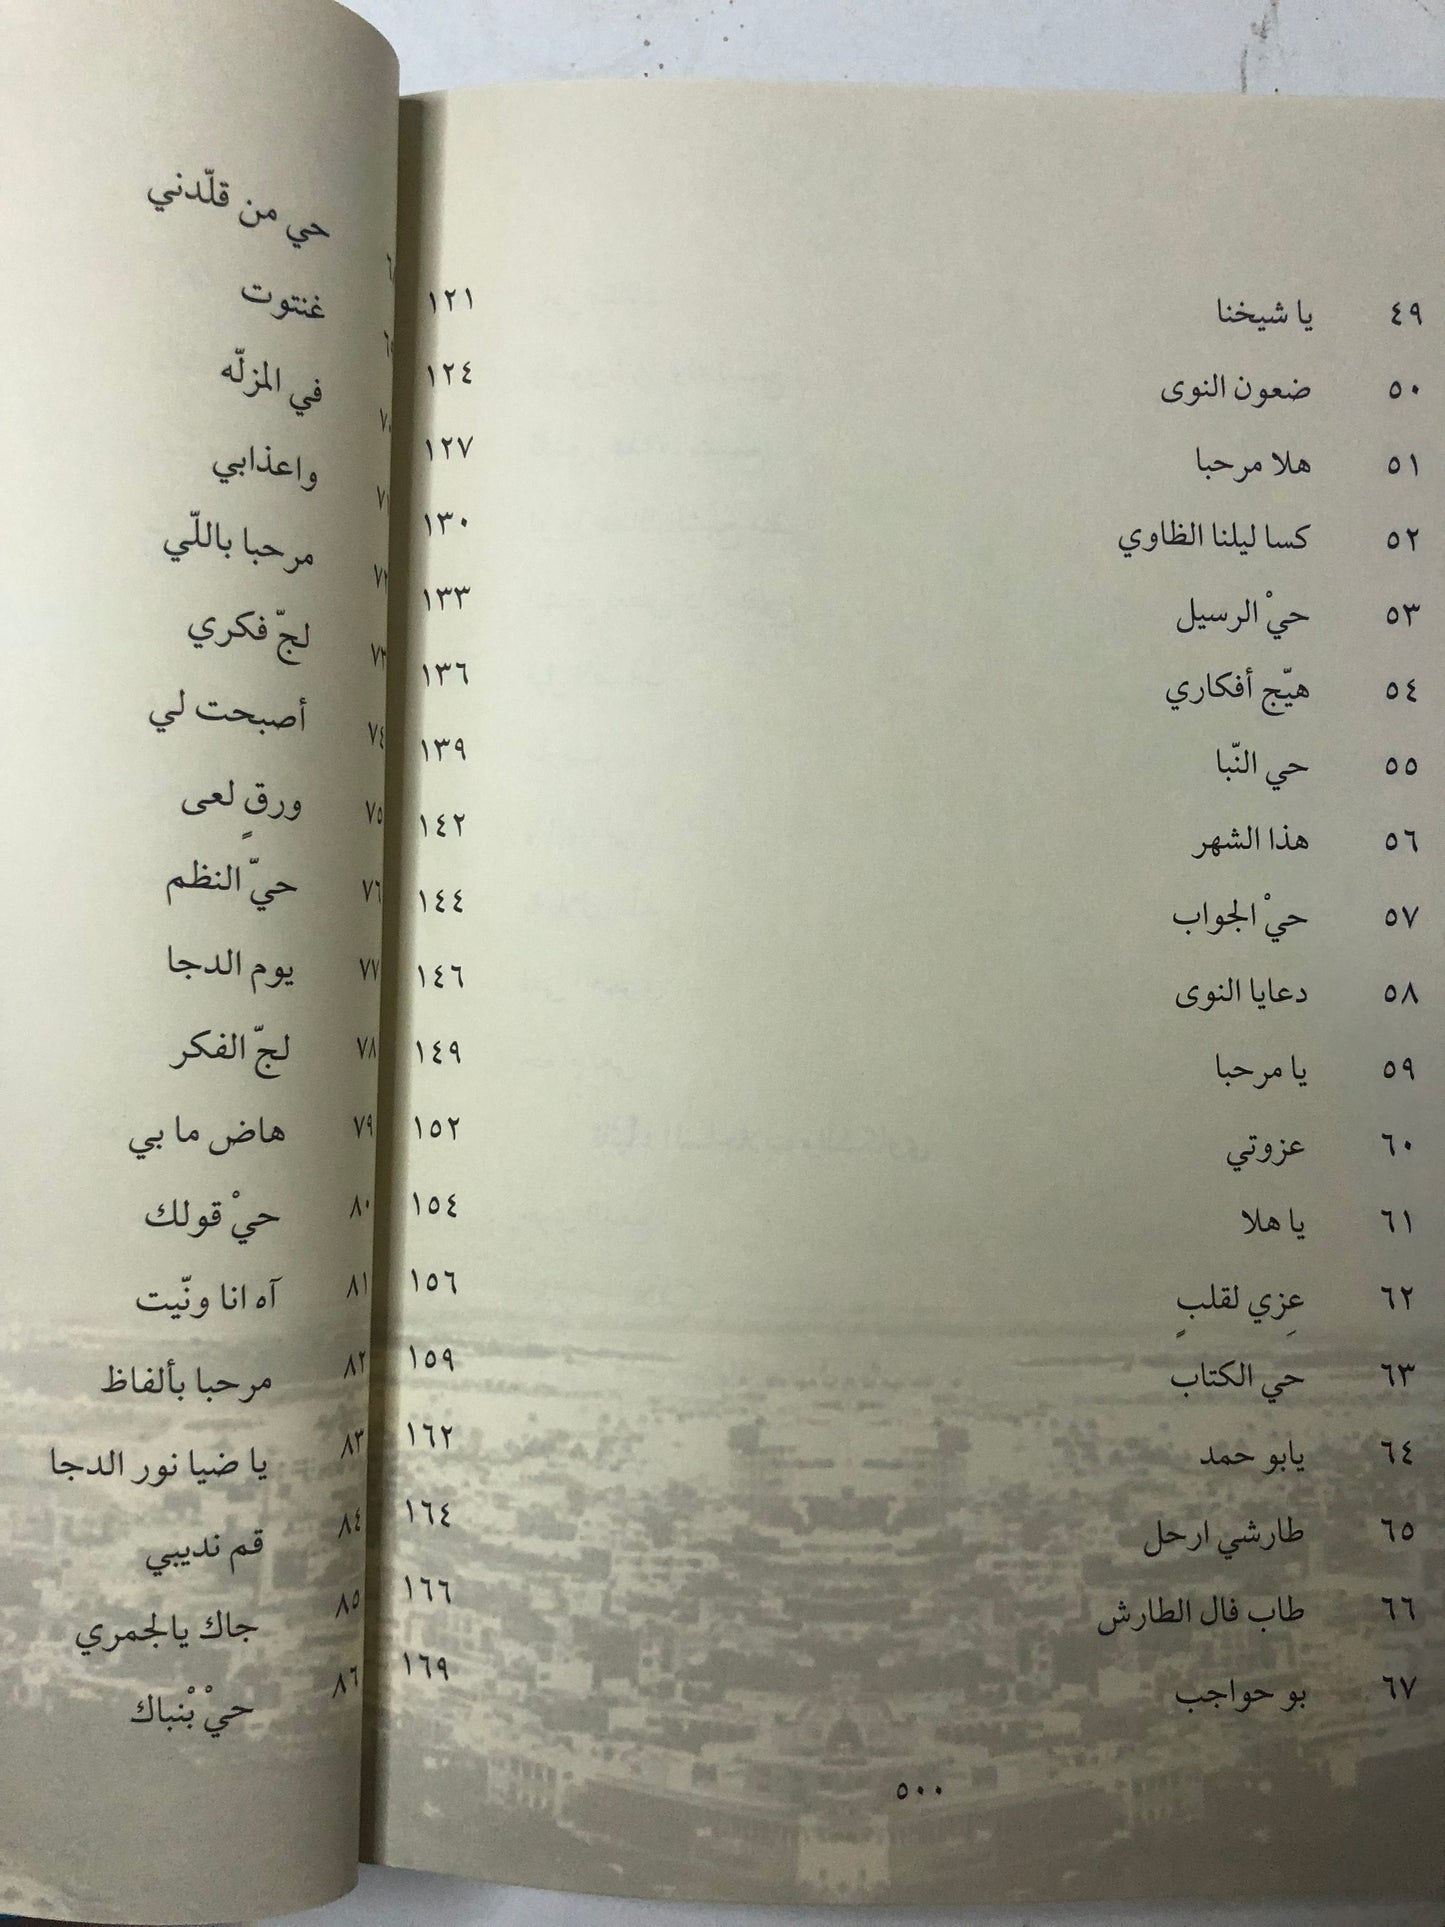 ٤٩ يا شيخنا ١٢١
٥٠ ضعون النوى ١٢٤
٥١ هلا مرحبا ١٢٧
٥٢ كسا ليلنا الظاوي ١٣٠
٥٣ حيْ الرسيل ١٣٣
٥٤ هيّج أفكاري ١٣٦
٥٥ حي النّبا ١٣٩
٥٦ هذا الشهر ١٤٢
٥٧ حيْ الجواب ١٤٤
٥٨ دعايا النوى ١٤٦
٥٩ يا مرحبا ١٤٩
٦٠ عزوتي ١٥٢
٦١ يا هلا ١٥٤
٦٢ عِزي لقلبٍ ١٥٦
٦٣ حي الكتاب ١٥٩
٦٤ يابو حمد ١٦٢
٦٥ طارشي ارحل ١٦٤
٦٦ طاب فال الطارش ١٦٦
٦٧ بو حواجب ١٦٩
٥٠٠
حي من قلّدني
غنتوت
في المزلّه
واعذابي
٧٢ مرحبا باللّي
٧٣ لجّ فكري
٧٤ أصبحت لي
٧٥ ورقٍ لعى
٧٦ حيّ النظم
٧٧ يوم الدجا
٧٨ لجّ الفكر
٧٩ هاض ما بي
٨٠ حيْ قولك
٨١ آه انا ونّيت
٨٢ مرحبا بألفاظ
٨٣ يا ضيا نور الدجا
٨٤ قم نديبي
٨٥ جاك يالجمري
٨٦ حيْ بْنباك